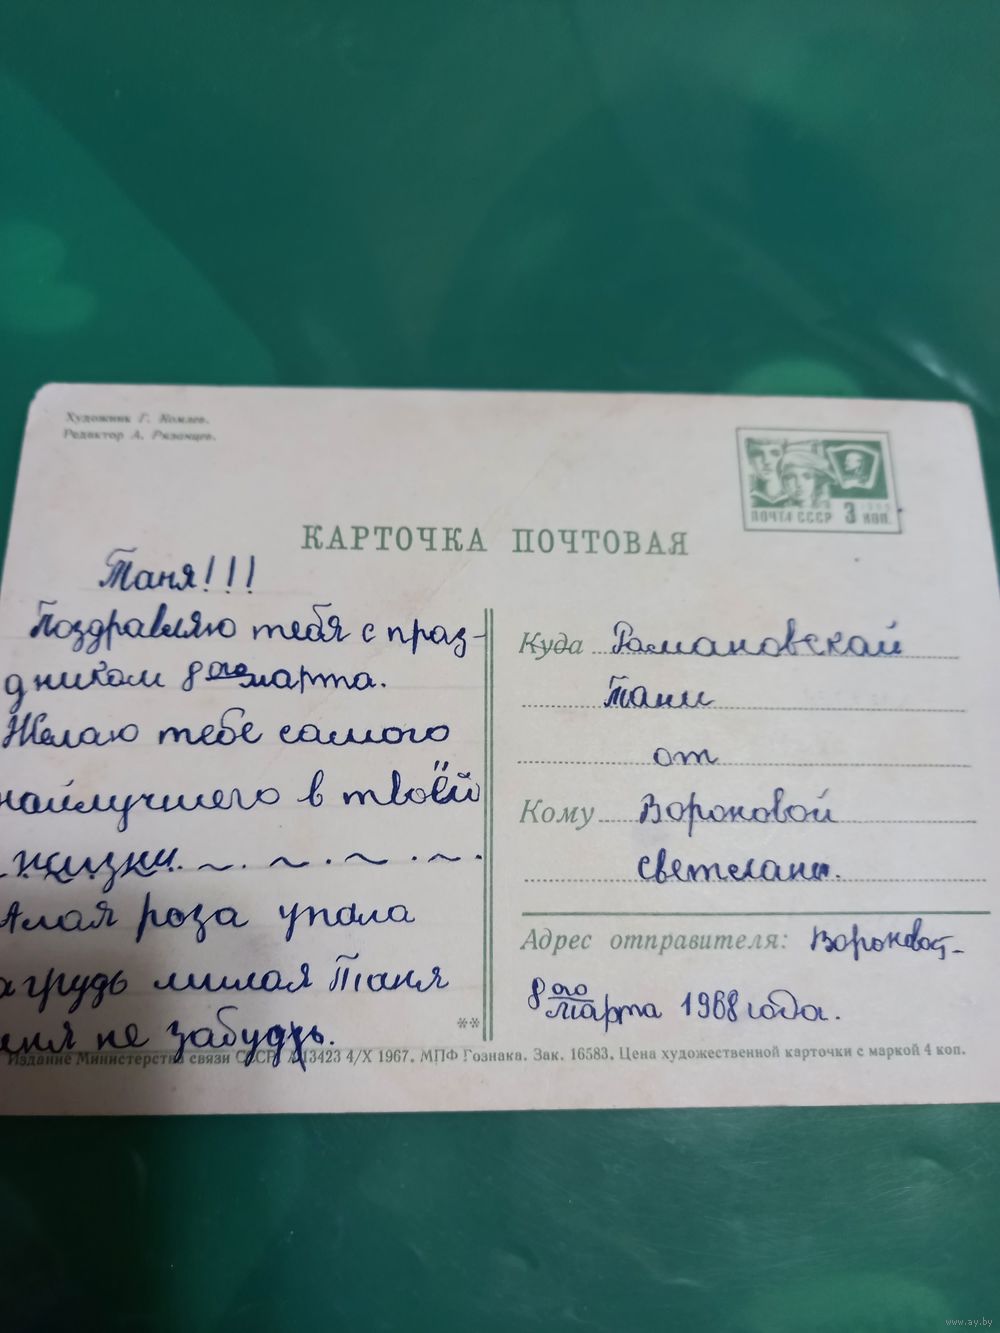 Художник Г. Комлев.
Редактор А. Рязанцев.
ПОЧТА СССР 3 КОП.
КАРТОЧКА ПОЧТОВАЯ
Таня!!!
Поздравляю тебя с праз-
дником 8ого марта.
Желаю тебе самого
наилучшего в твоёй
жизни. ~ . ~ . ~ . ~ .
Алая роза упала
а грудь милая Таня
еня не забудь.
Куда Рамановской
Тани
от
Кому Вороновой
Светелани.
Адрес отправителя:
8ого марта 1968 года.
**
Издание Министерства связи СССР. А 13423 4/X 1967. МПФ Гознака. Зак. 16583. Цена художественной карточки с маркой 4 коп.
www.ay.by